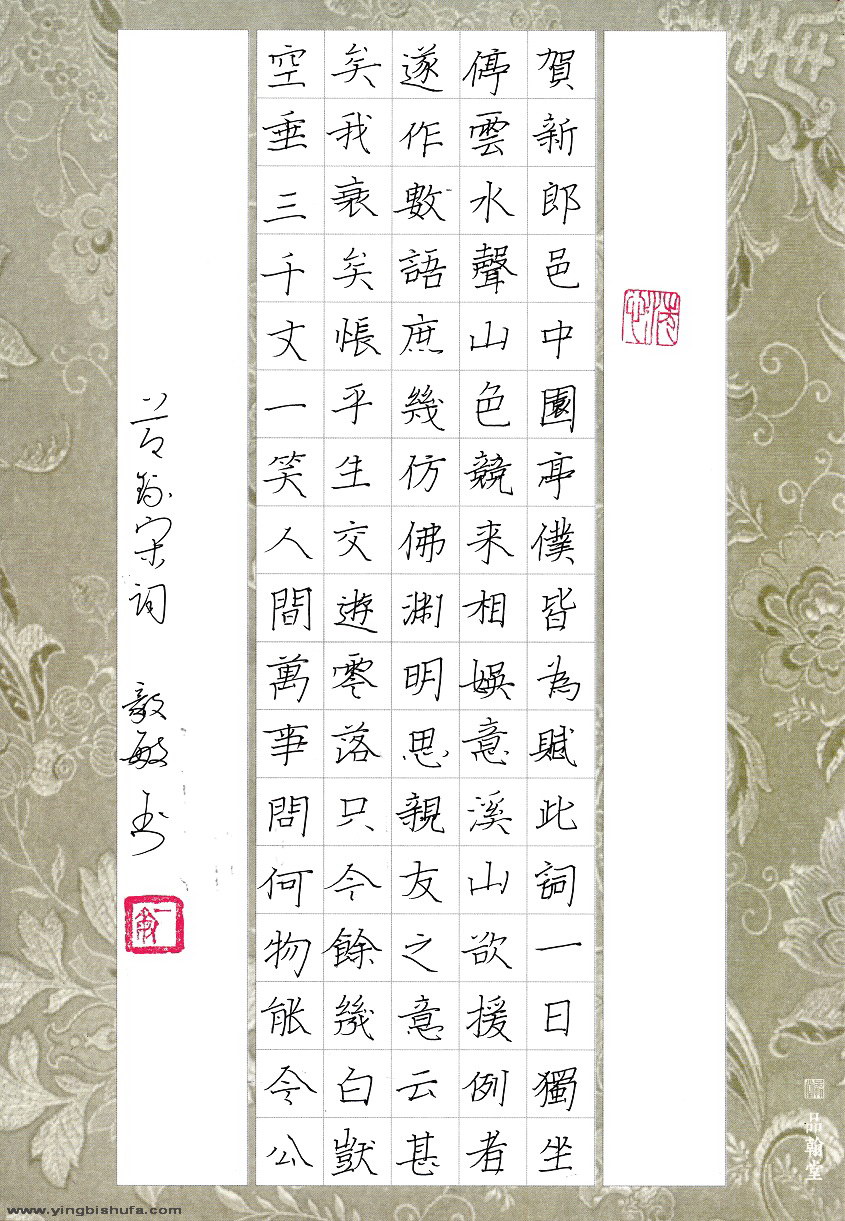 賀新郎邑中園亭僕皆為賦此詞一日獨坐
停雲水聲山色競来相娛意溪山欲援例者
遂作數語庶幾仿佛渊明思親友之意云甚
矣我衰矣悵平生交遊零落只今餘幾白獃
空垂三千丈一笑人間萬事問何物能令公
节錄宋词 毅敏书
品翰堂
www.yingbishufa.com